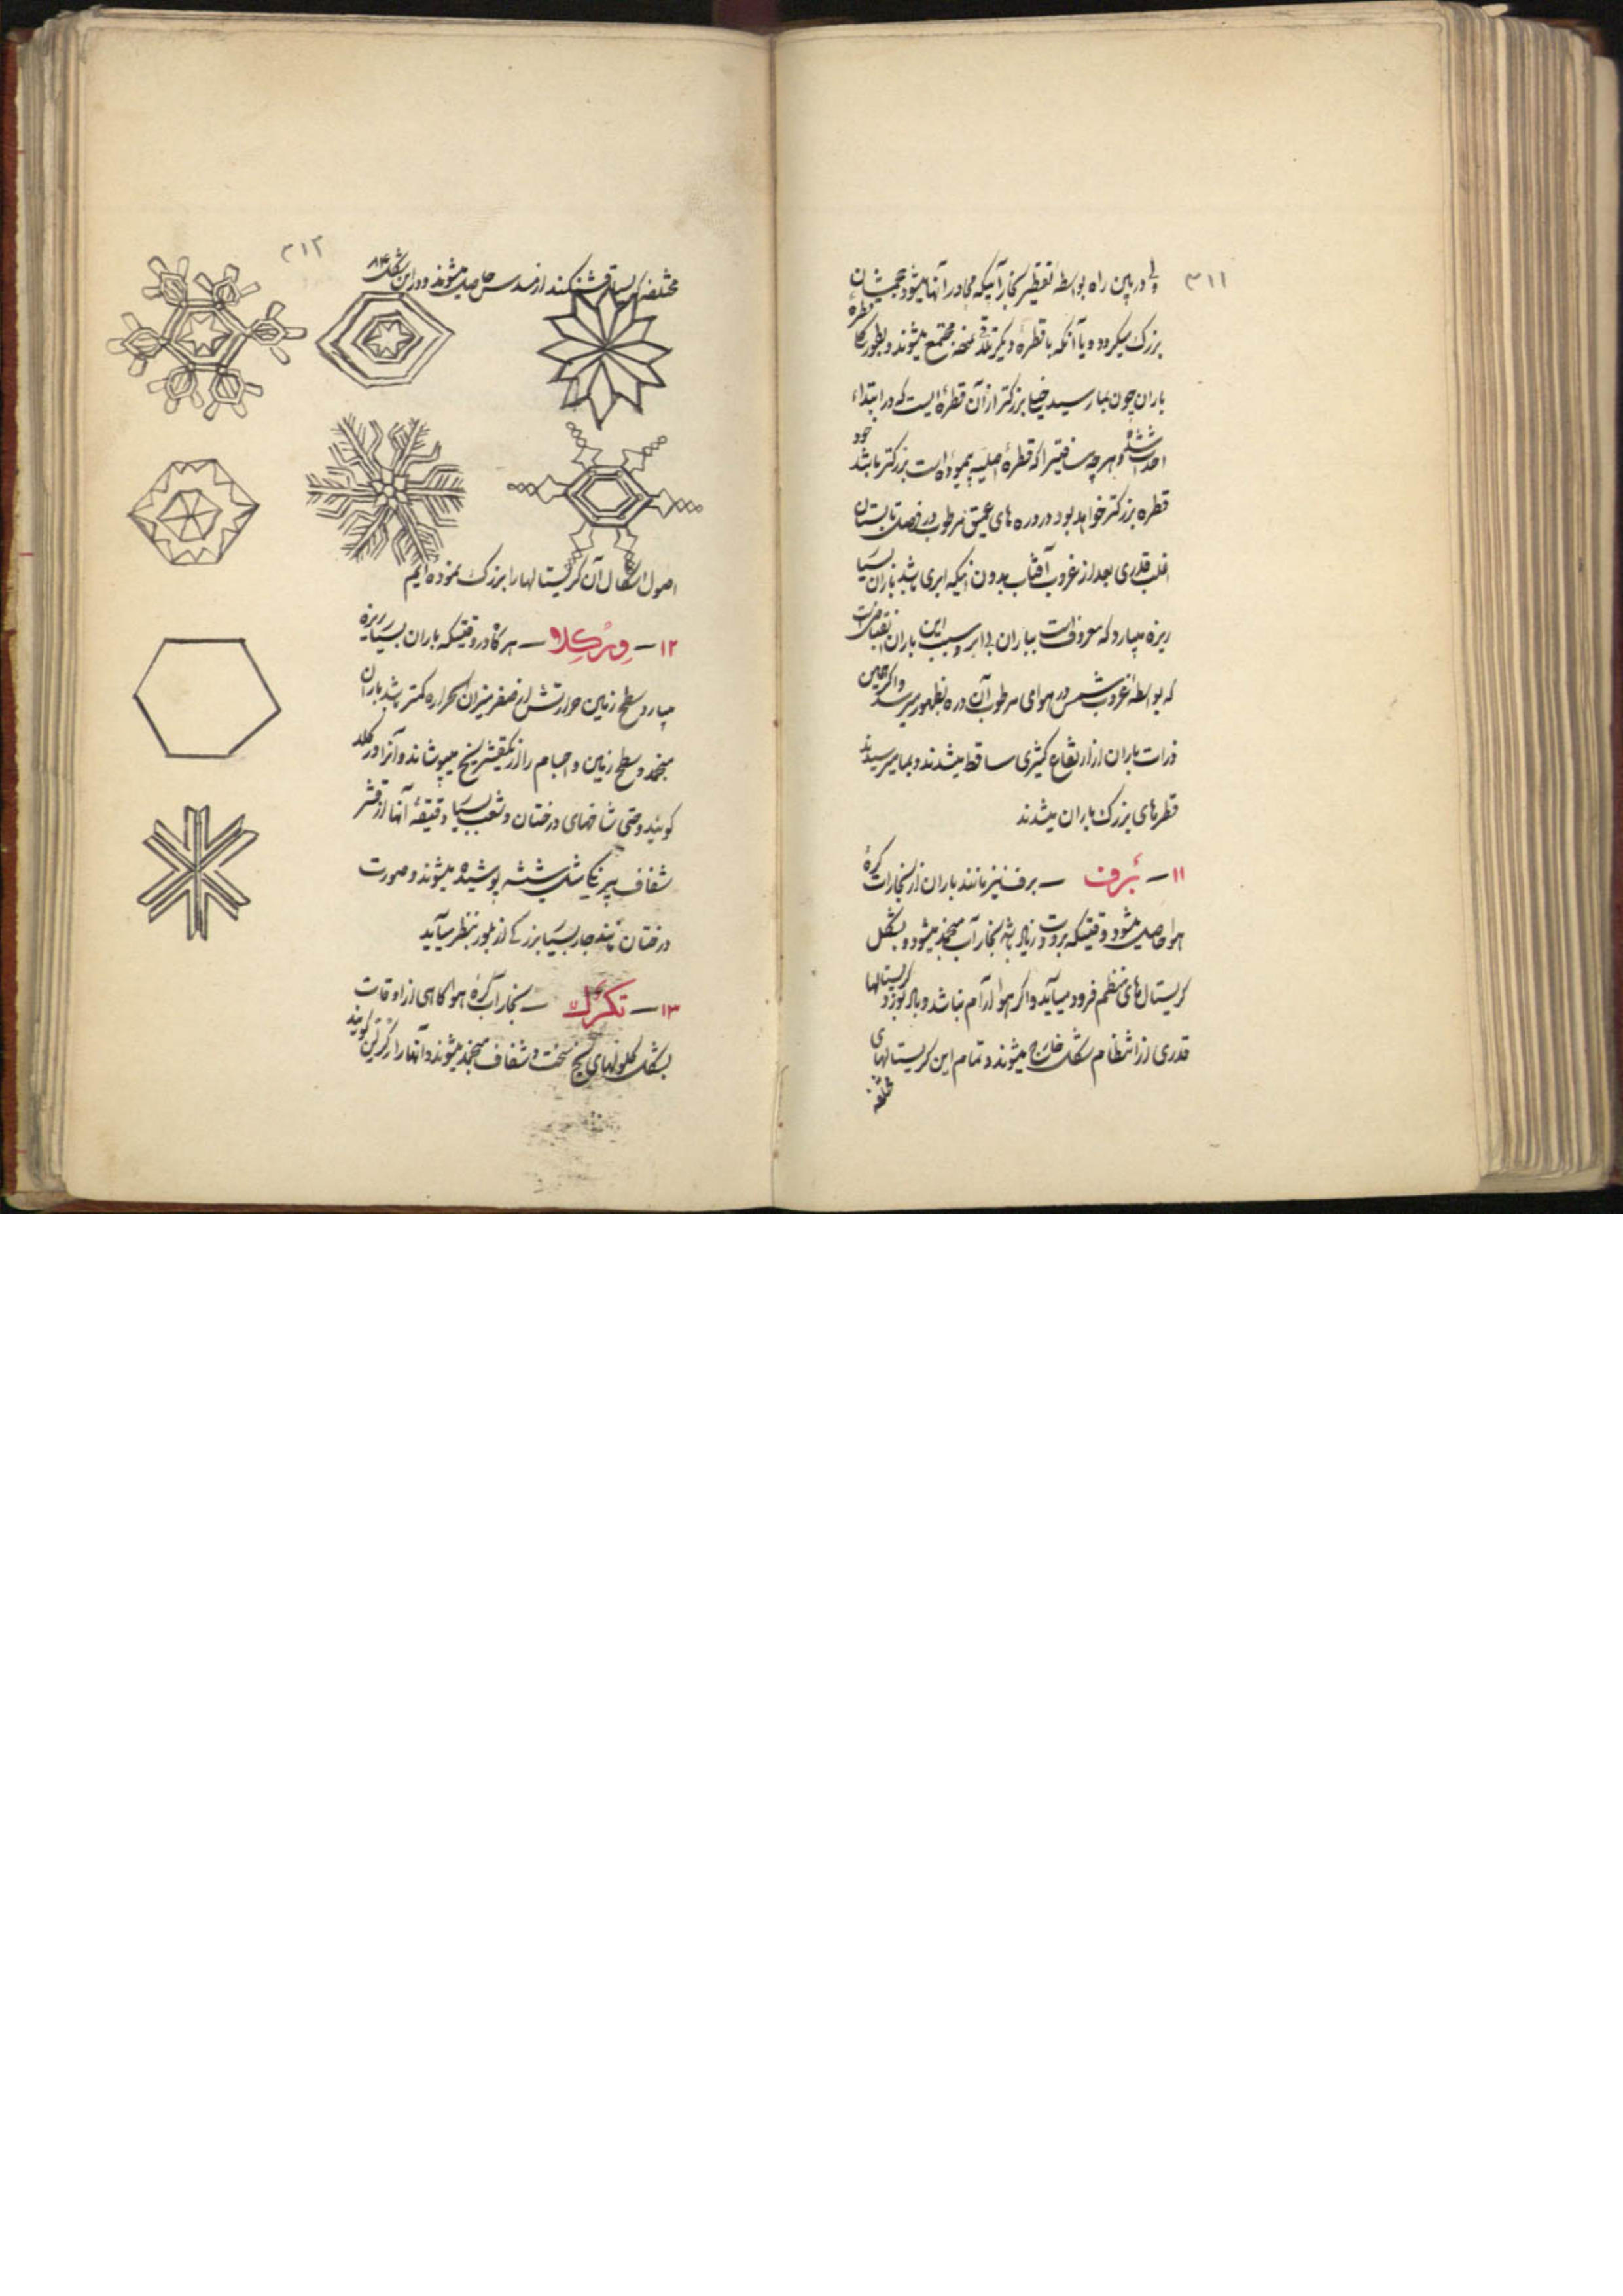 ۳۱۱
ولی در بین راه بواسطهٔ تقطیر بخار آبیکه مجاور آنها میشود حجمشان
بزرگ میگردد و یا آنکه با قطرهٔ دیگر تلاقی نموده مجتمع میشوند و بطور کلی قطرهٔ
باران چون بما رسید خیلی بزرگتر از آن قطره ایست که در ابتداء
احداث شده و هر چه مسافتیرا که قطرهٔ اصلیه پیموده است بزرگتر باشد خود
قطره بزرگتر خواهد بود در دره های عمیق مرطوب در فصل تابستان
اغلب قدری بعد از غروب آفتاب بدون اینکه ابری باشد باران بسیار
ریزه میبارد که معروف است بباران بی ابر و سبب این باران
که بواسطهٔ غروب شمس در هوای مرطوب آن دره بظهور میرسد و اگر چنین
ذرات باران از ارتفاع کثیری ساقط میشدند و بما میرسیدند
قطرهای بزرگ باران میشدند
۱۱ – بَرف – برف نیز مانند باران از بخارات کرهٔ
هوا حاصل میشود وقتیکه برودت زیاد باشد بخار آب منجمد میشود و بشکل
کریستال های منظم فرود میآید و اگر هوا آرام نباشد و باد بوزد کریستالها
قدری از انتظام شکل خارج میشوند و تمام این کریستالهای
مختلفه
۳۱۲
مختلفه که بسیار قشنگند از مسدس حاصل میشوند و در این شکل ۸۴
اصول اشکال آن کریستالها را بزرگ نموده ایم
۱۲ – وِرْگلا – هر گاه در وقتیکه باران بسیار ریزه
میبارد سطح زمین حرارتش از صفر میزان الحراره کمتر باشد باران
منجمد و سطح زمین و اجسام را از یکقشر یخ میپوشاند و آنرا ورگلا
گویند و حتی شاخهای درختان و شعب بسیار دقیقهٔ آنها از قشر
شفاف بیرنگی مثل شیشه پوشیده میشوند و صورت
درختان مانند جار بسیار بزرگی از بلور بنظر میآید
۱۳ – تگرگ – بخار آب کرهٔ هوا گاهی از اوقات
بشکل گلولهای یخ سخت و شفاف منجمد میشوند و آنها را تگرگ گویند